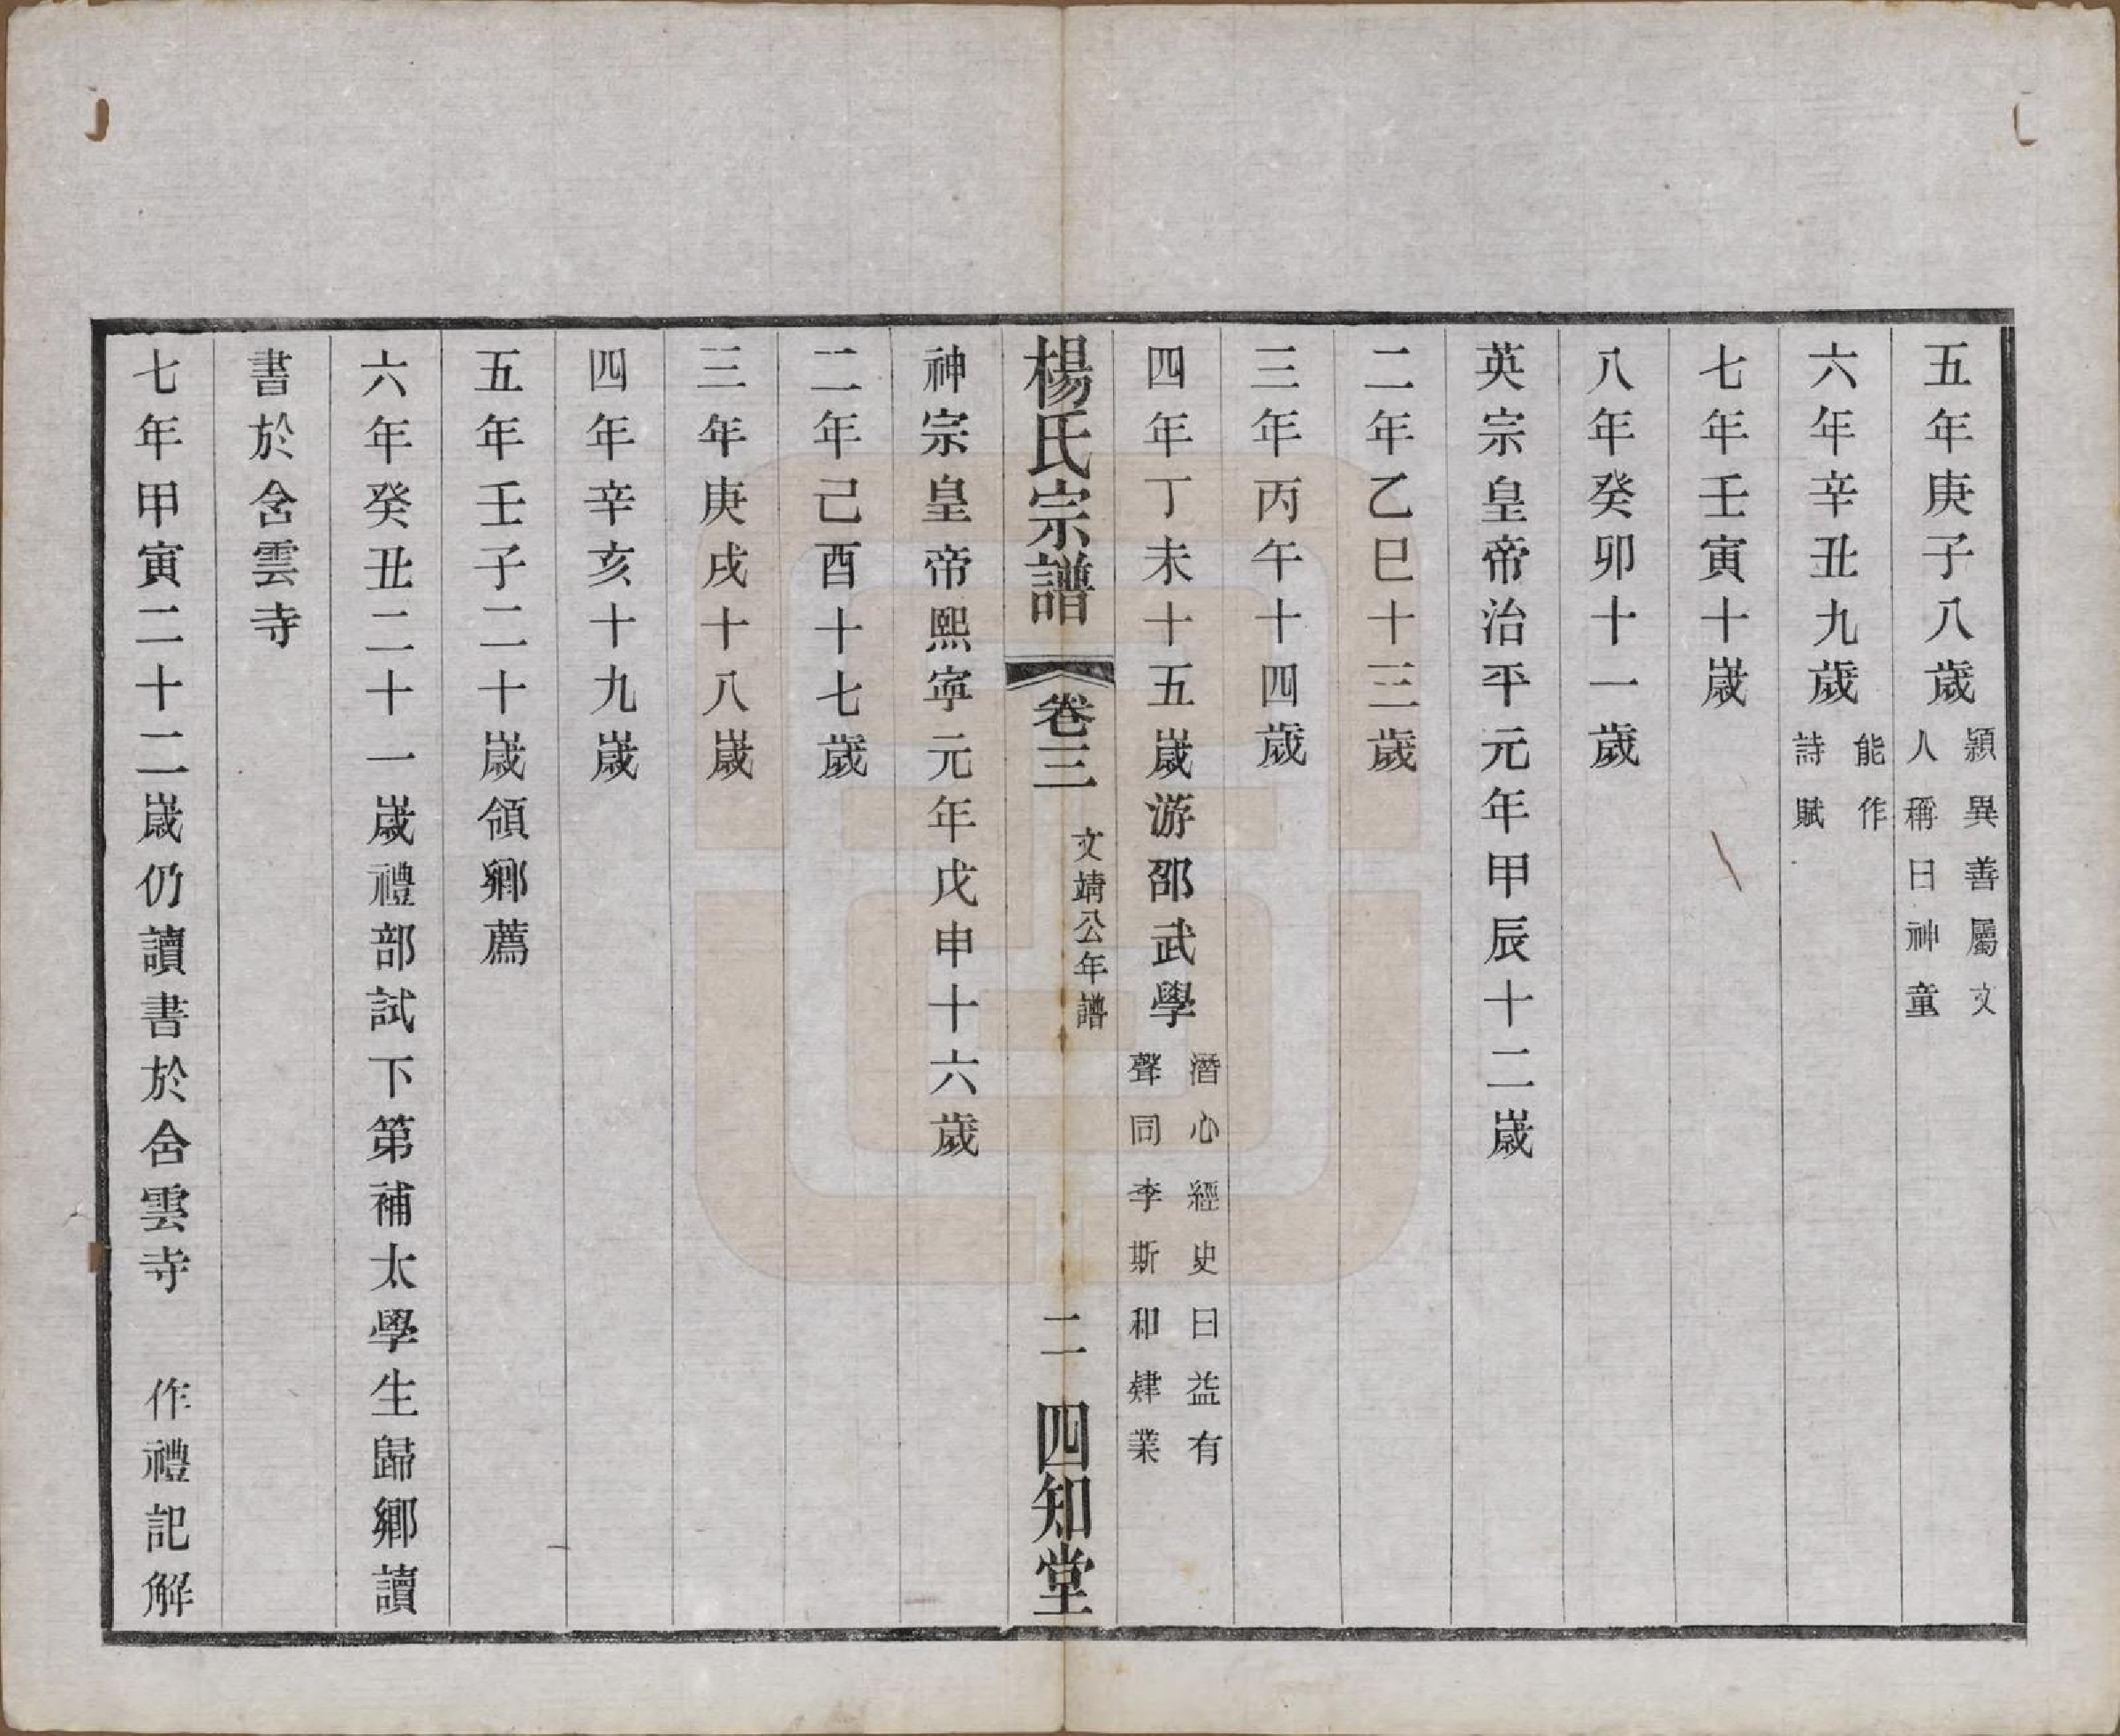 五年庚子八歲穎異善屬文人稱曰神童
六年辛丑九歲能作詩賦
七年壬寅十歲
八年癸卯十一歲
英宗皇帝治平元年甲辰十二歲
二年乙巳十三歲
三年丙午十四歲
四年丁未十五歲游邵武學潛心經史日益有聲同李斯和肄業
楊氏宗譜 卷三 文靖公年譜 二 四知堂
神宗皇帝熙寧元年戊申十六歲
二年己酉十七歲
三年庚戌十八歲
四年辛亥十九歲
五年壬子二十歲領鄉薦
六年癸丑二十一歲禮部試下第補太學生歸鄉讀
書於含雲寺
七年甲寅二十二歲仍讀書於含雲寺 作禮記解